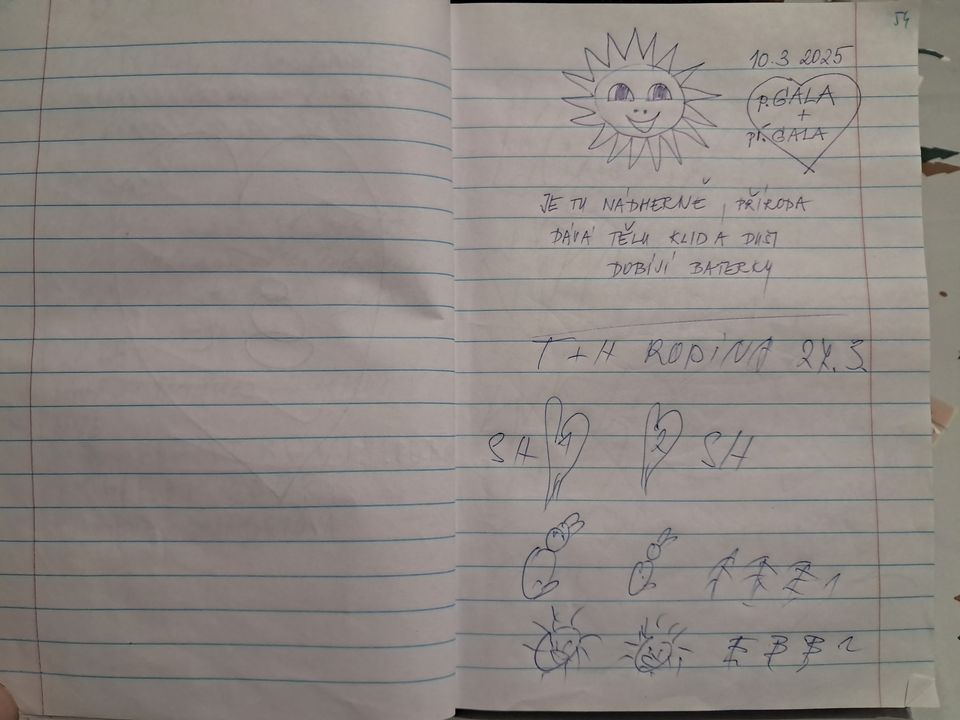 54
10.3 2025
p.GÁLA
+
př.GALA
JE TU NÁDHERNĚ, PŘÍRODA
DÁVÁ TĚLU KLID A DUŠI
DOBÍJÍ BATERKY
T + H RODINA 27.3
SH 1 2 SH
1
2